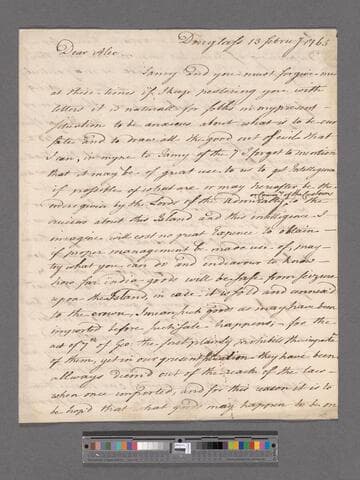 Douglass 13 febru.y 1765
Dear Alec
Jamy and you must forgive me
at this time if I keep pestering you with
letters it is natural for folks in my present
situation to be anxious about what is to be our
fate and to draw all the good out of evils that
I can, in myne to Jamy of the 7 I forgot to mention
that it may be of great use to us to get Intelligence
if possible of what are or may hereafter be the
orders given by the Lords of the Admiralty to the
cruisers about this Island and this intelligence I
imagine will cost no great Expence to obtain
if proper management be made use of,
try what you can do and endeavour to know
how far india goods will be safe from seizure
upon the Island, in case it is sold and annex'd
to the crown, I mean such goods as may have been
imported before such sale happens, for the
act of 7th of Geo. the first plainly prohibits the
of them, yet in our present situation they have been
allways deem'd out of the reach of the law
when once imported, and for this reason it is to
be hop'd that what goods may happen to be on